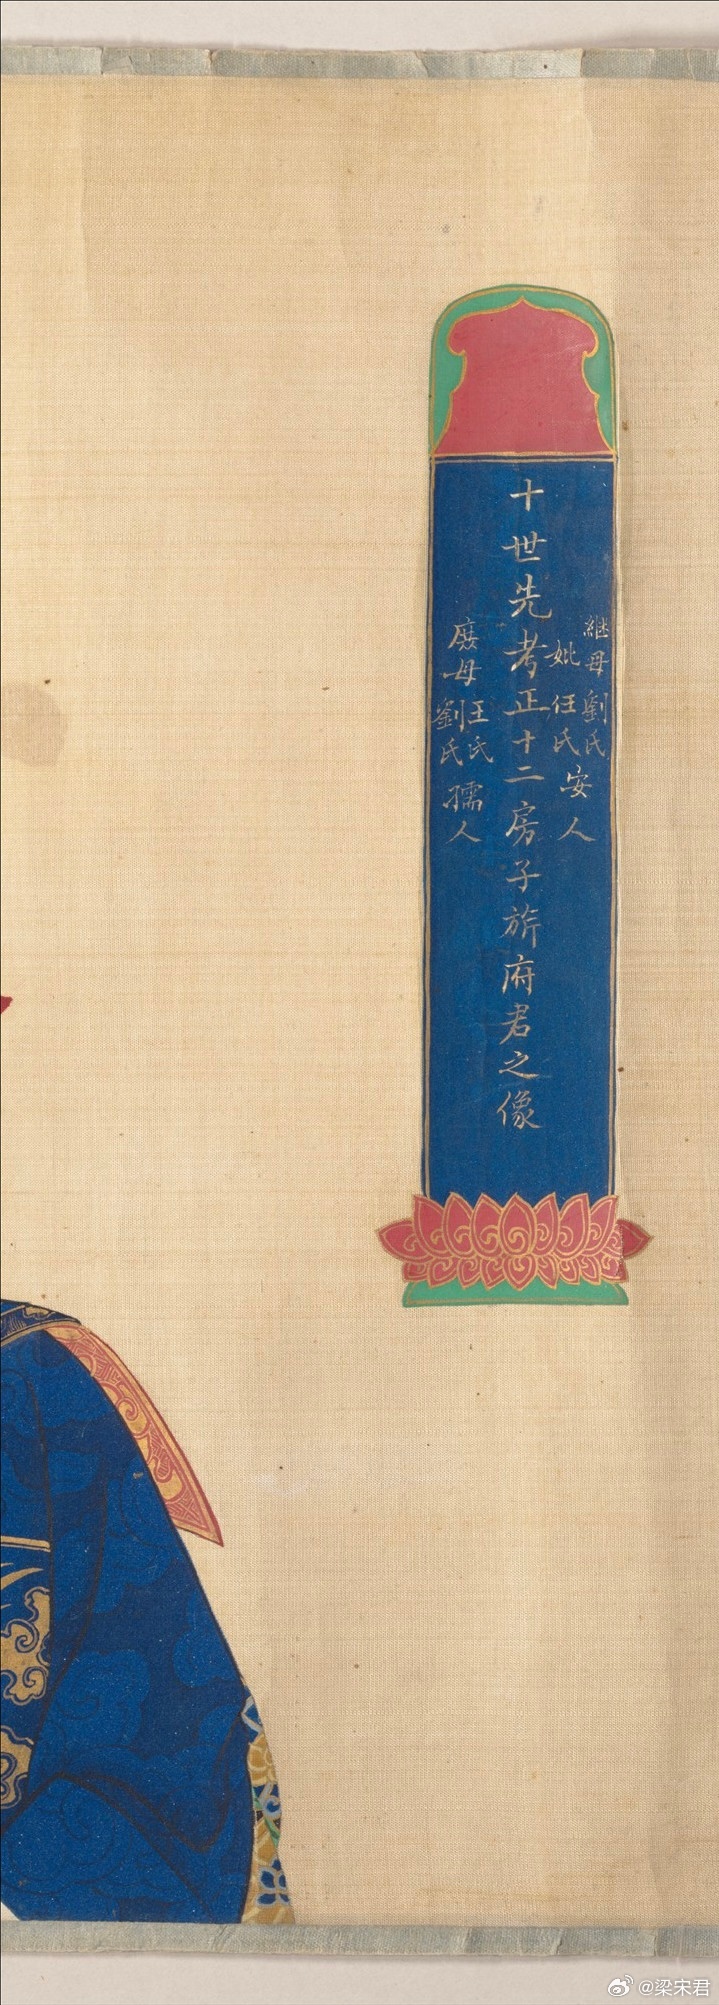 繼母劉氏
妣任氏安人
十世先考正十二房子旂府君之像
庶母王氏
劉氏孺人
@梁宋君